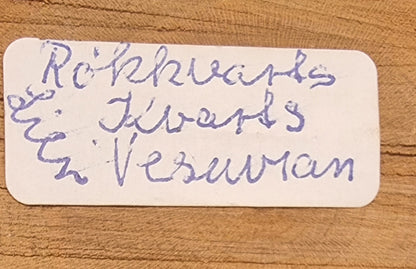 Rökkvarts
Kvarts
Vesuvian